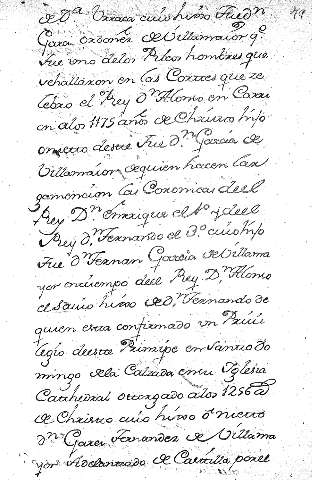 de Dª Urraca cuio hixo fue dⁿ
Garci ordoñez de Villamaior qᵉ
fue uno de los Ricos hombres que
se hallaron en las Cortes que ze
lebro el Rey Dⁿ Alonso en Carri
on a los 1175 años de Christo hijo
o nieto deste fue Dⁿ Garcia de
Villamaior de quien hacen lar
ga mencion las Coronicas del
Rey Dⁿ Enrrique el 1º y de el
Rey Dⁿ Fernando el 3º cuio hijo
fue Dⁿ Fernan Garcia de Villama
yor en tiempo de el Rey Dⁿ Alonso
el Savio hixo de Dⁿ Fernando de
quien esta confirmado un Privi
legio de este Principe en Santo do
mingo de la Calzada en su Iglesia
Cathedral otorgado a los 1256 aˢ
de Christo cuio hixo o nieto
Dⁿ Garci Fernandez de Villama
yor Adelantado de Castilla por el